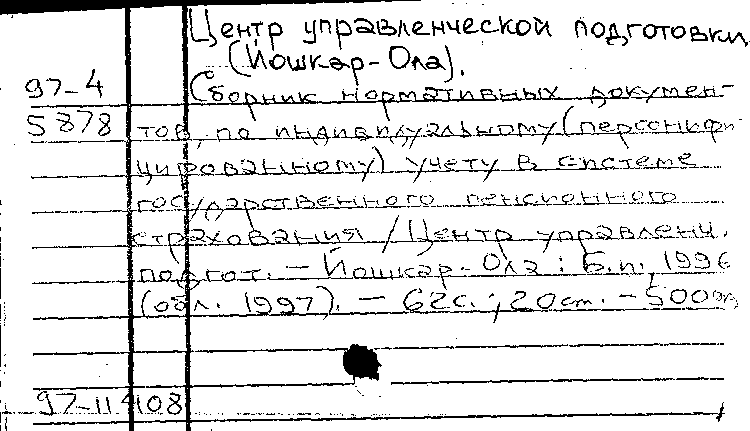 Центр управленческой подготовки
(Йошкар-Ола).
97-4 Сборник нормативных докумен-
5878 тов, по индивидуальному (персонифи
цированному) учету в системе
государственного пенсионного
страхования / Центр управленч.
подгот. — Йошкар-Ола : Б.и., 1996
(обл. 1997). — 62с. ; 20см. — 500
97-11408